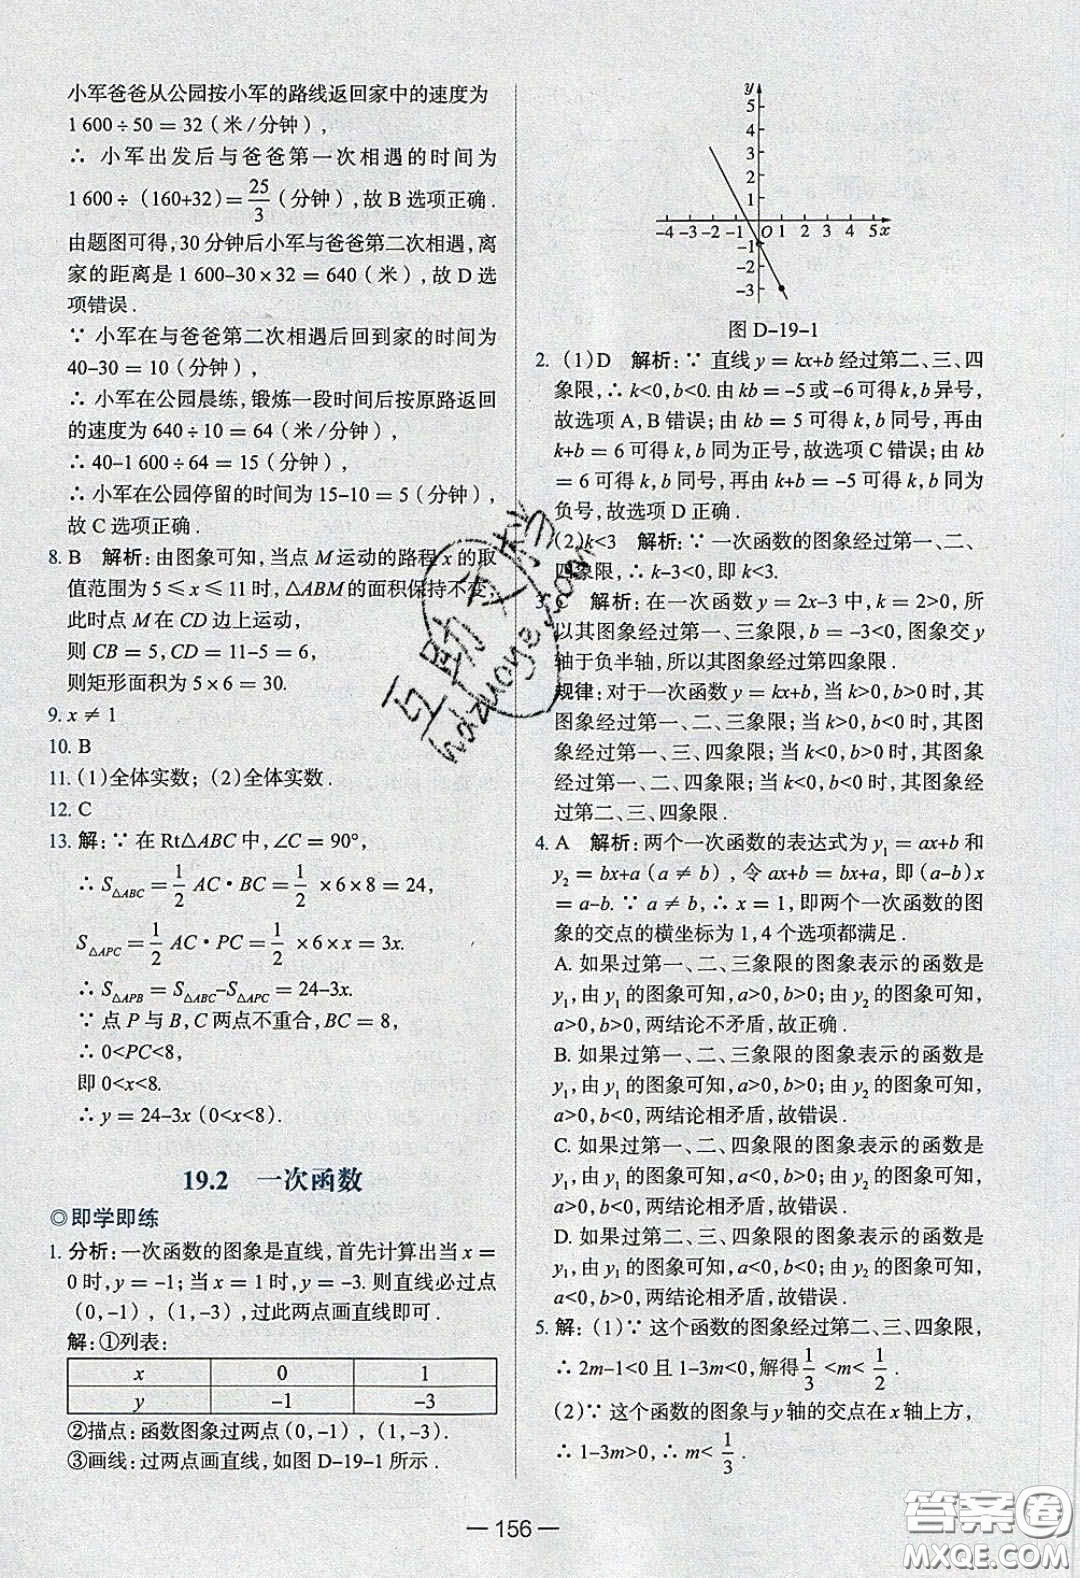 小军爸爸从公园按小军的路线返回家中的速度为
1 600÷50 = 32（米/分钟），
∴ 小军出发后与爸爸第一次相遇的时间为
1 600÷（160+32）= 25/3（分钟），故 B 选项正确.
由题图可得，30 分钟后小军与爸爸第二次相遇，离
家的距离是 1 600–30×32 = 640（米），故 D 选
项错误.
∵ 小军在与爸爸第二次相遇后回到家的时间为
40–30 = 10（分钟），
∴ 小军在公园晨练，锻炼一段时间后按原路返回
的速度为 640÷10 = 64（米/分钟），
∴ 40–1 600÷64 = 15（分钟），
∴ 小军在公园停留的时间为 15–10 = 5（分钟），
故 C 选项正确.
8. B 解析：由图象可知，当点 M 运动的路程 x 的取
值范围为 5 ≤ x ≤ 11 时，△ABM 的面积保持不变，
此时点 M 在 CD 边上运动，
则 CB = 5，CD = 11–5 = 6，
则矩形面积为 5×6 = 30.
9. x ≠ 1
10. B
11.（1）全体实数；（2）全体实数.
12. C
13. 解：∵ 在 Rt△ABC 中，∠C = 90°，
∴ S△ABC = 1/2 AC·BC = 1/2 ×6×8 = 24，
S△APC = 1/2 AC·PC = 1/2 ×6×x = 3x.
∴ S△APB = S△ABC–S△APC = 24–3x.
∵ 点 P 与 B，C 两点不重合，BC = 8，
∴ 0<PC<8，
即 0<x<8.
∴ y = 24–3x（0<x<8）.
19.2 一次函数
◎即学即练
1. 分析：一次函数的图象是直线，首先计算出当 x =
0 时，y = –1；当 x = 1 时，y = –3. 则直线必过点
（0，–1），（1，–3），过此两点画直线即可.
解：①列表：
x 0 1
y –1 –3
②描点：函数图象过两点（0，–1），（1，–3）.
③画线：过两点画直线，如图 D–19–1 所示.
y
5
4
3
2
1
–4 –3 –2 –1 O 1 2 3 4 5 x
–1
–2
–3
图 D–19–1
2.（1）D 解析：∵ 直线 y = kx+b 经过第二、三、四
象限，∴ k<0，b<0. 由 kb = –5 或 –6 可得 k，b 异号，
故选项 A，B 错误；由 kb = 5 可得 k，b 同号，再由
k+b = 6 可得 k，b 同为正号，故选项 C 错误；由 kb
= 6 可得 k，b 同号，再由 k+b = –5 可得 k，b 同为
负号，故选项 D 正确.
（2）k<3 解析：∵ 一次函数的图象经过第一、二、
四象限，∴ k–3<0，即 k<3.
3. C 解析：在一次函数 y = 2x–3 中，k = 2>0，所
以其图象经过第一、三象限，b = –3<0，图象交 y
轴于负半轴，所以其图象经过第四象限.
规律：对于一次函数 y = kx+b，当 k>0，b>0 时，其
图象经过第一、二、三象限；当 k>0，b<0 时，其图
象经过第一、三、四象限；当 k<0，b>0 时，其图象
经过第一、二、四象限；当 k<0，b<0 时，其图象经
过第二、三、四象限.
4. A 解析：两个一次函数的表达式为 y₁ = ax+b 和
y₂ = bx+a（a ≠ b），令 ax+b = bx+a，即（a–b）x
= a–b. ∵ a ≠ b，∴ x = 1，即两个一次函数的图
象的交点的横坐标为 1，4 个选项都满足.
A. 如果过第一、二、三象限的图象表示的函数是
y₁，由 y₁ 的图象可知，a>0，b>0；由 y₂ 的图象可知，
a>0，b>0，两结论不矛盾，故正确.
B. 如果过第一、二、三象限的图象表示的函数是
y₁，由 y₁ 的图象可知，a>0，b>0；由 y₂ 的图象可知，
a>0，b<0，两结论相矛盾，故错误.
C. 如果过第一、二、四象限的图象表示的函数是
y₁，由 y₁ 的图象可知，a<0，b>0；由 y₂ 的图象可知，
a<0，b<0，两结论相矛盾，故错误.
D. 如果过第二、三、四象限的图象表示的函数是
y₁，由 y₁ 的图象可知，a<0，b<0；由 y₂ 的图象可知，
a<0，b>0，两结论相矛盾，故错误.
5. 解：（1）∵ 这个函数的图象经过第二、三、四象限，
∴ 2m–1<0 且 1–3m<0，解得 1/3 <m< 1/2 .
（2）∵ 这个函数的图象与 y 轴的交点在 x 轴上方，
∴ 1–3m>0，∴ m< 1/3 .
— 156 —
互助文档
hdzuoye.com
答案圈
MXQE.COM